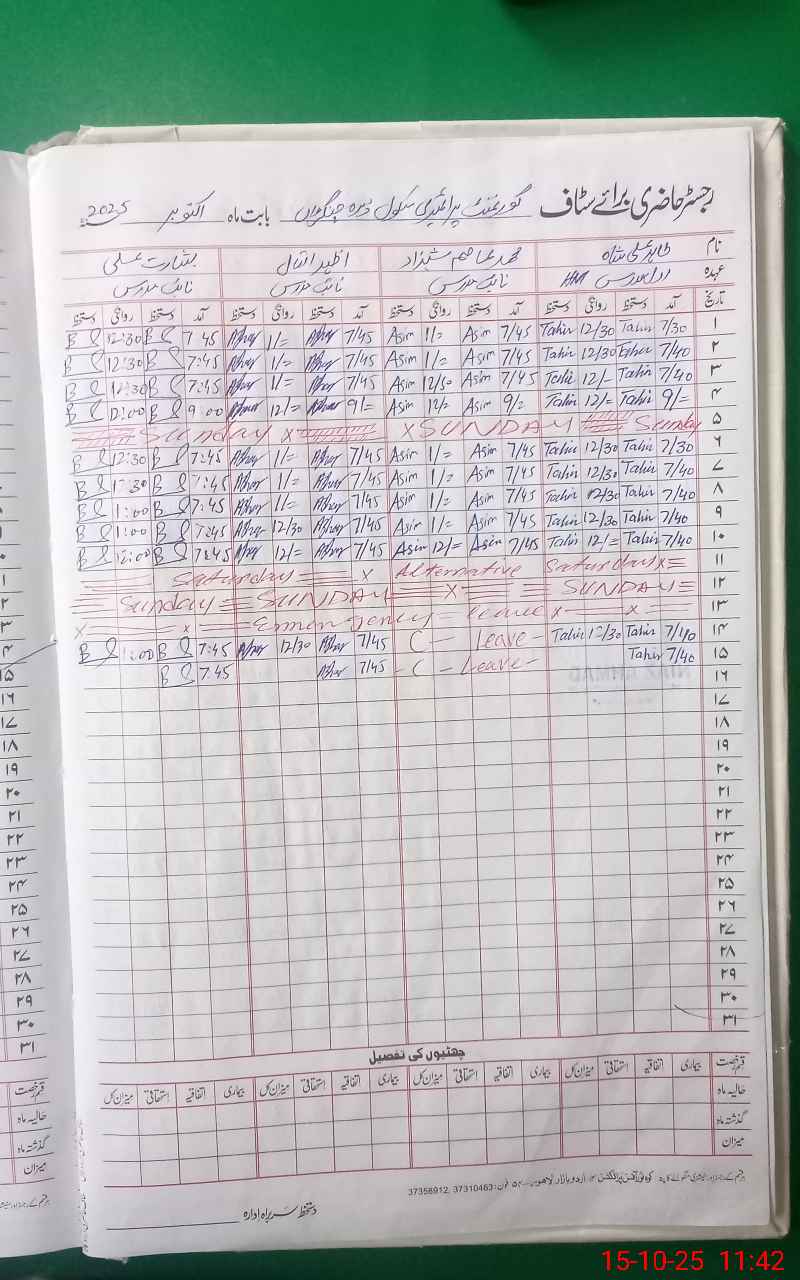 رجسٹر حاضری برائے سٹاف گورنمنٹ پرائمری سکول ڈیرہ بابت ماہ اکتوبر 2025ء
نام طاہر علی شاہ محمد عاصم شہزاد اظہر اقبال بشارت علی
عہدہ اول مدرس HM نائب مدرس نائب مدرس نائب مدرس
تاریخ آمد دستخط روانگی دستخط آمد دستخط روانگی دستخط آمد دستخط روانگی دستخط آمد دستخط روانگی دستخط
۱ 7/30 Tahir 12/30 Tahir 7/45 Asim 1/= Asim 7/45 Azhar 1/= Azhar 7:45 B 12:30 B
۲ 7/40 Tahir 12/30 Tahir 7/45 Asim 1/= Asim 7/45 Azhar 1/= Azhar 7:45 B 12:30 B
۳ 7/40 Tahir 12/- Tahir 7/45 Asim 12/30 Asim 7/45 Azhar 1/= Azhar 7:45 B 12:30 B
۴ 9/= Tahir 12/= Tahir 9/= Asim 12/= Asim 9/= Azhar 12/= Azhar 9:00 B 12:00 B
۵ Sunday x x SUNDAY Sunday
۶ 7/30 Tahir 12/30 Tahir 7/45 Asim 1/= Asim 7/45 Azhar 1/= Azhar 7:45 B 12:30 B
۷ 7/40 Tahir 12/30 Tahir 7/45 Asim 1/= Asim 7/45 Azhar 1/= Azhar 7:45 B B
۸ 7/40 Tahir 12/30 Tahir 7/45 Asim 1/= Asim 7/45 Azhar 1/= Azhar 7:45 B 1:00 B
۹ 7/40 Tahir 12/30 Tahir 7/45 Asim 1/= Asim 7/45 Azhar 12/30 Azhar 7:45 B 1:00 B
۱۰ 7/40 Tahir 12/= Tahir 7/45 Asim 12/= Asim 7/45 Azhar 12/= Azhar 7:45 B 12:00 B
۱۱ Saturday x Alternative Saturday x
۱۲ Sunday SUNDAY x SUNDAY
۱۳ x x Emergency - leave x x
۱۴ 7/40 Tahir 12/30 Tahir C - Leave - 7/45 Azhar 12/30 Azhar 7:45 B 1:00 B
۱۵ 7/40 Tahir - C - Leave - 7/45 Azhar 7:45 B
۱۶
۱۷
۱۸
۱۹
۲۰
۲۱
۲۲
۲۳
۲۴
۲۵
۲۶
۲۷
۲۸
۲۹
۳۰
۳۱
چھٹیوں کی تفصیل
قسم رخصت بیماری اتفاقیہ استحقاقی میزان کل بیماری اتفاقیہ استحقاقی میزان کل بیماری اتفاقیہ استحقاقی میزان کل بیماری اتفاقیہ استحقاقی میزان کل
حالیہ ماہ
گذشتہ ماہ
میزان
اردو بازار لاہور فون: 37310463, 37356912
دستخط سربراہ ادارہ
15-10-25 11:42